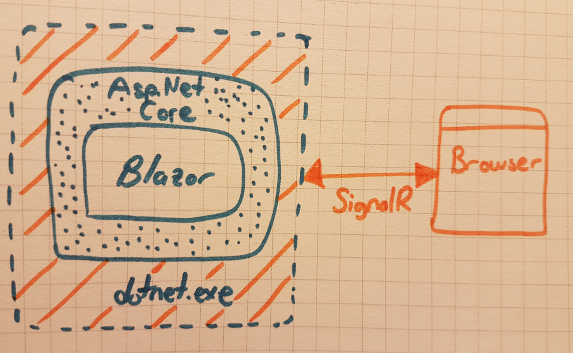 Asp.Net
Core
Blazor
dotnet.exe
SignalR
Browser